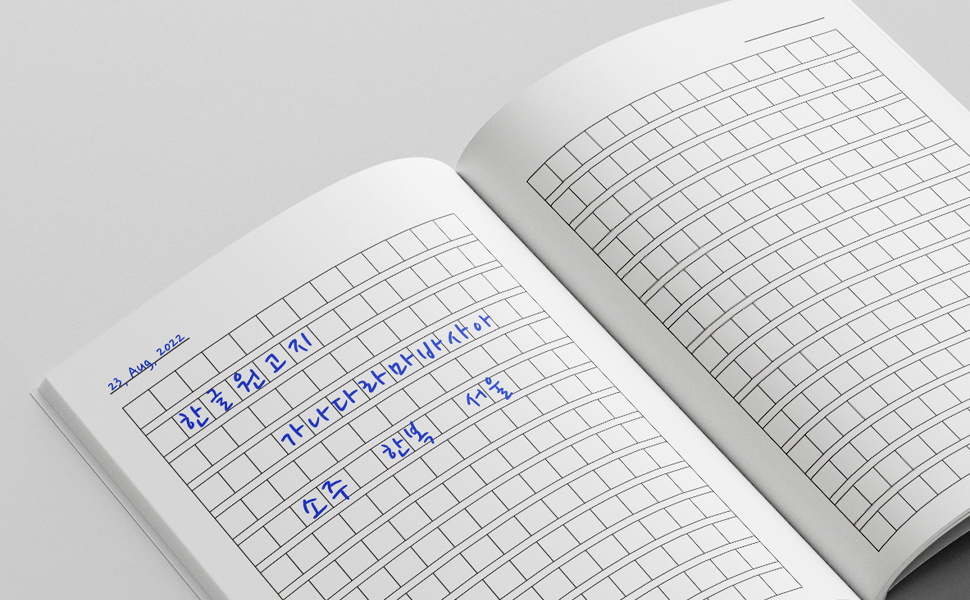 23, Aug, 2022
한글원고지
가나다라마바사아
소주 한복 서울